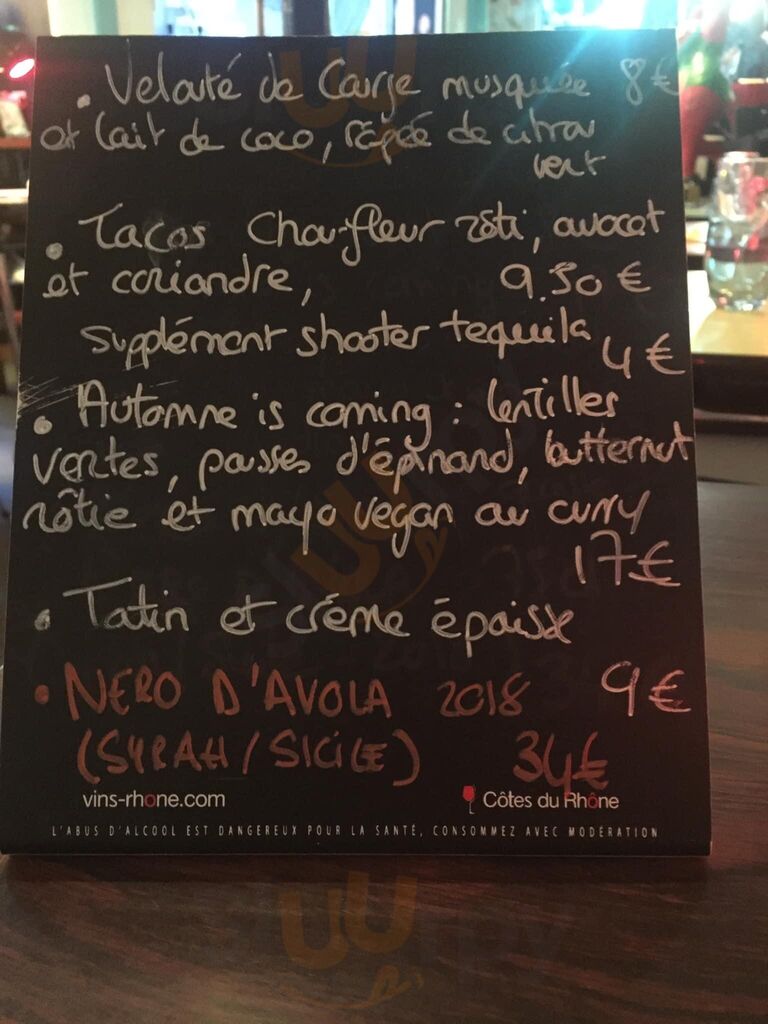 . Velouté de Courge musquée 8€
et lait de coco, râpée de citron
vert
. Tacos Chou-fleur rôti, avocat
et coriandre, 9.50 €
Supplément shooter tequila
4€
. Automne is coming : lentilles
vertes, pousses d'épinard, butternut
rôtie et mayo vegan au curry
17€
. Tatin et crème épaisse
9€
. NERO D'AVOLA 2018
(SYRAH / SICILE) 34€
vins-rhone.com
Côtes du Rhône
L'ABUS D'ALCOOL EST DANGEREUX POUR LA SANTÉ, CONSOMMEZ AVEC MODÉRATION